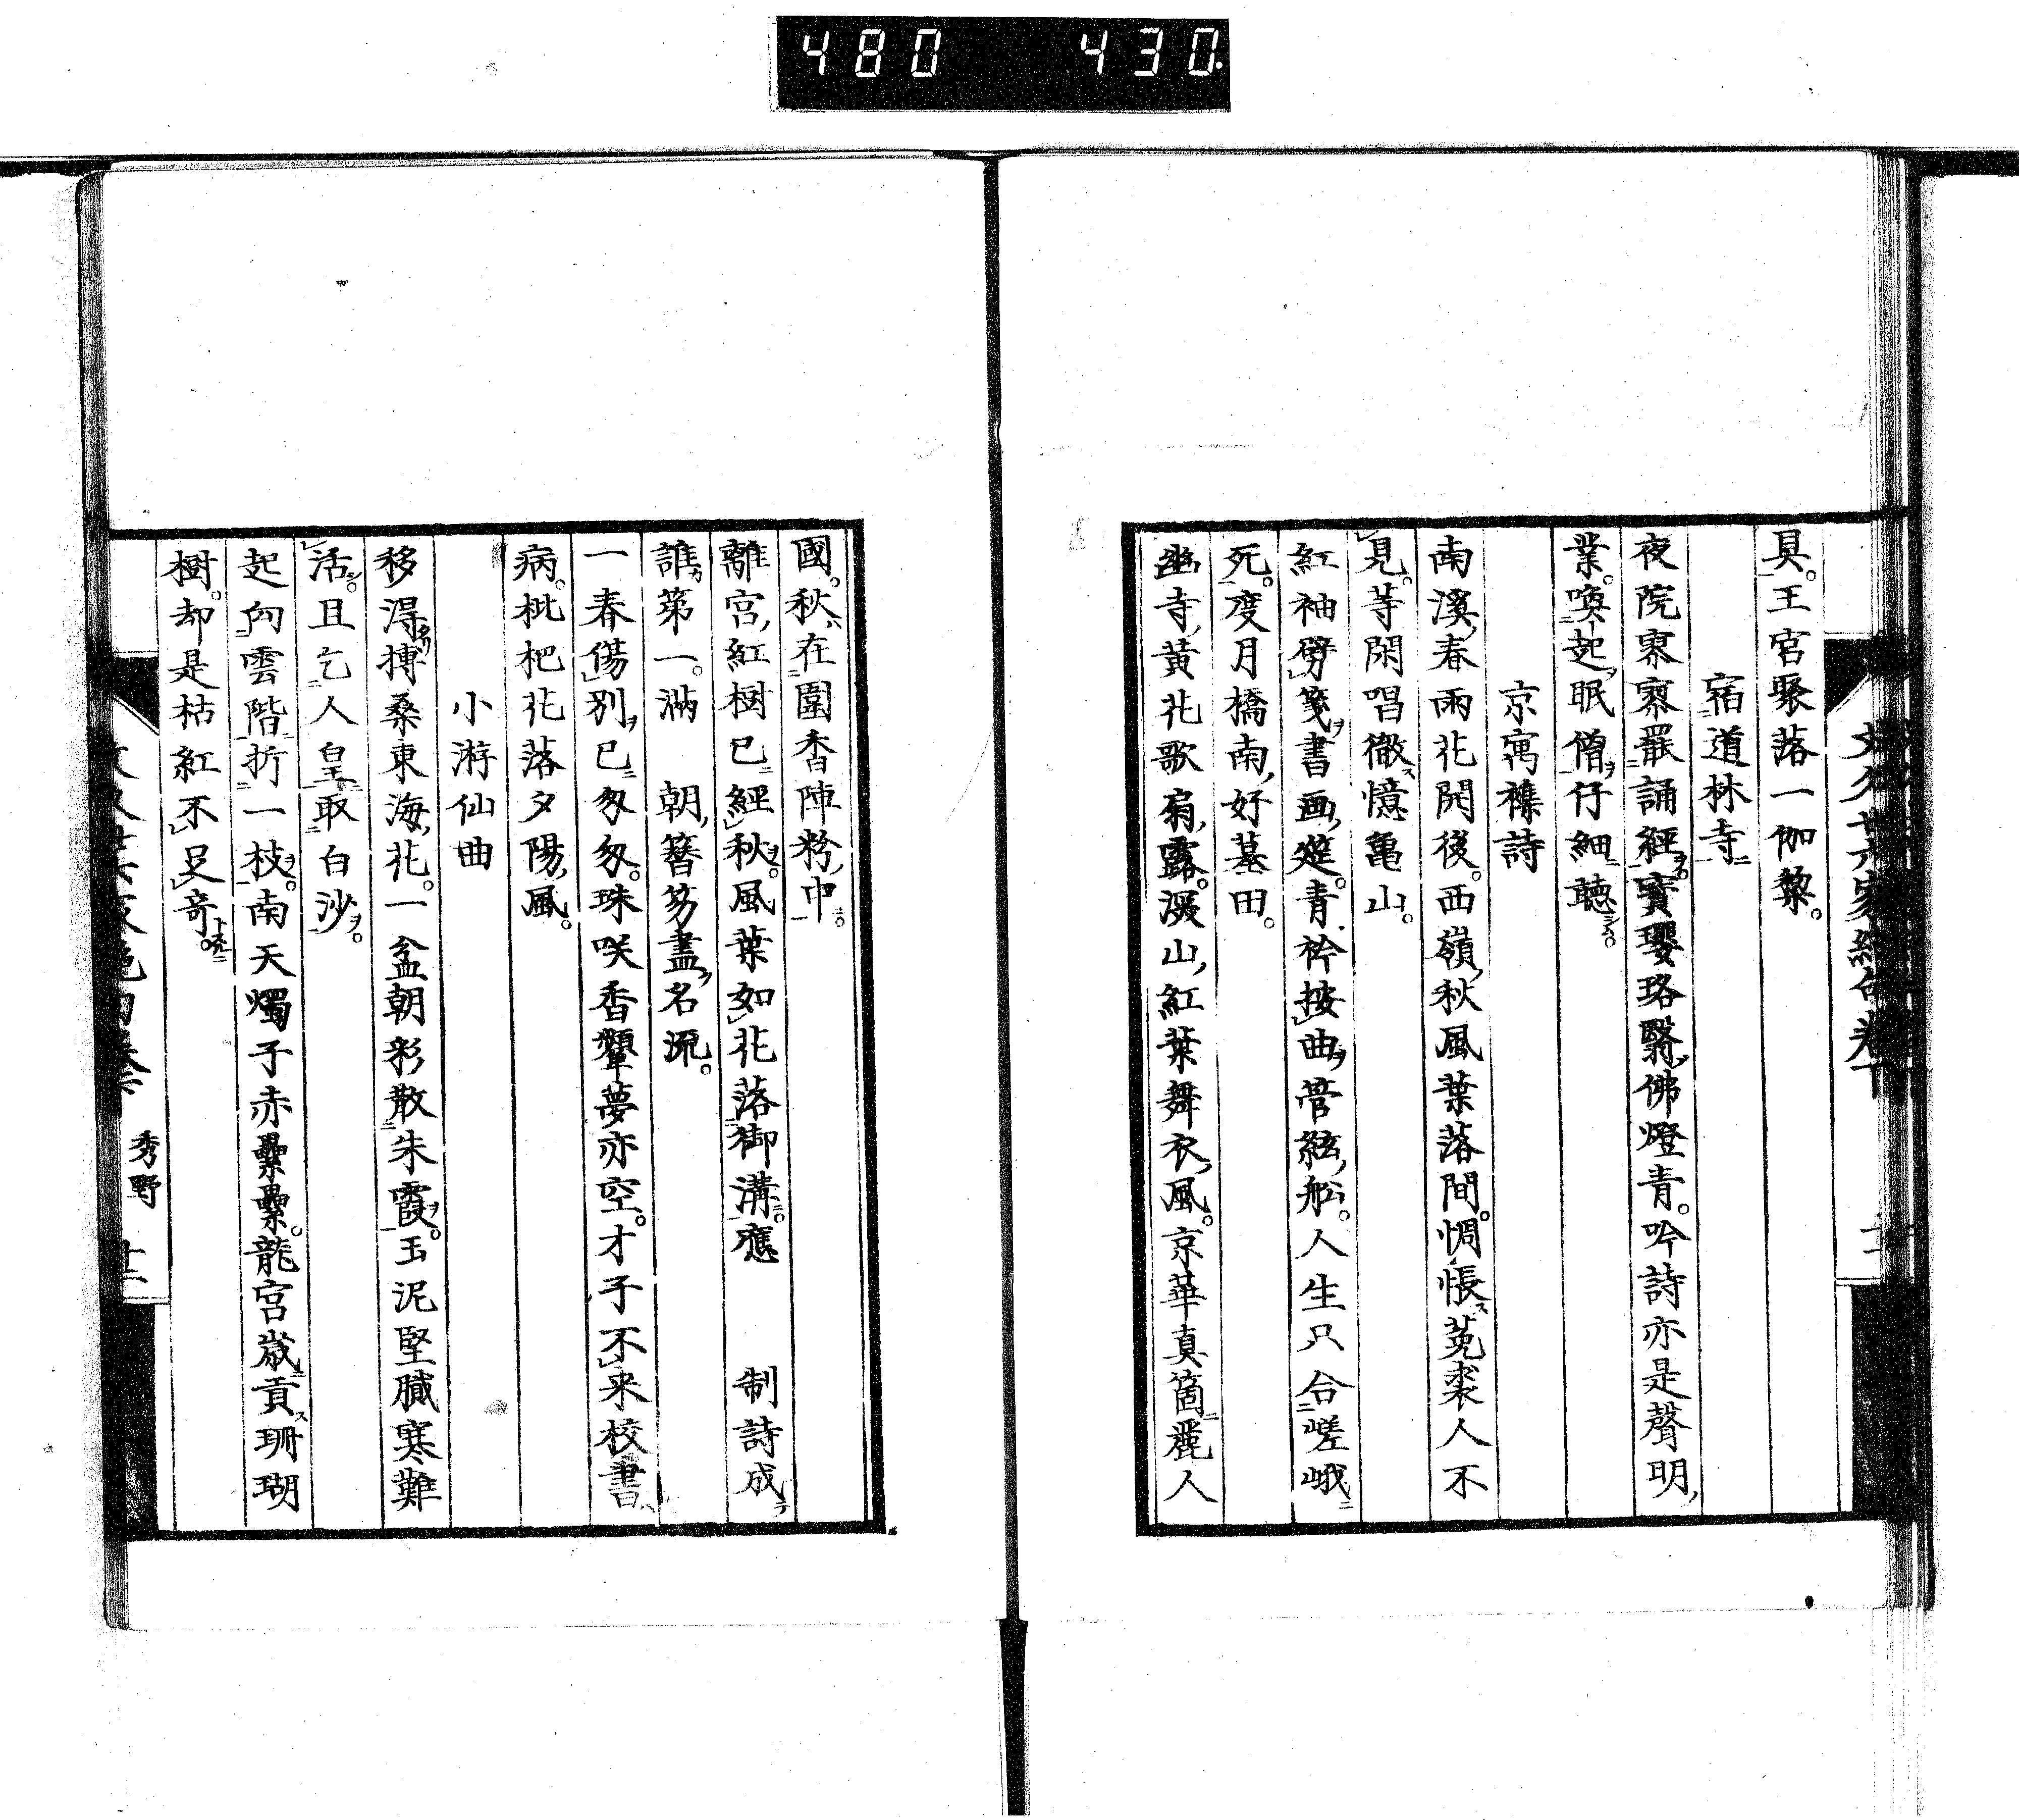 480 430.
具。王宮聚落一伽黎。
宿道林寺
夜院寥寥罷誦經。寶瓔珞翳佛燈青。吟詩亦是聲明
業。喚起眠僧仔細聽。
京寓襍詩
南溪春雨花開後。西嶺秋風葉落間。惆悵菟裘人不
見。等閑唱徹憶亀山。
紅袖劈箋書画筵。青衿按曲管絃舩。人生只合嵯峨
死。度月橋南好墓田。
幽寺黃花歌扇露。深山紅葉舞衣風。京華真箇麗人
國。秋在圍香陣粉中。
離宮紅樹已經秋。風葉如花落御溝。應 制詩成
誰第一。滿 朝簪笏盡名流。
一春傷別已匆匆。珠咲香顰夢亦空。才子不来校書
病。枇杷花落夕陽風。
小游仙曲
移得搏桑東海花。一盆朝彩散朱霞。玉泥堅膩寒難
活。且乞人皇取白沙。
起向雲階折一枝。南天燭子赤纍纍。龍宮歳貢珊瑚
樹。却是枯紅不足奇。
秀野